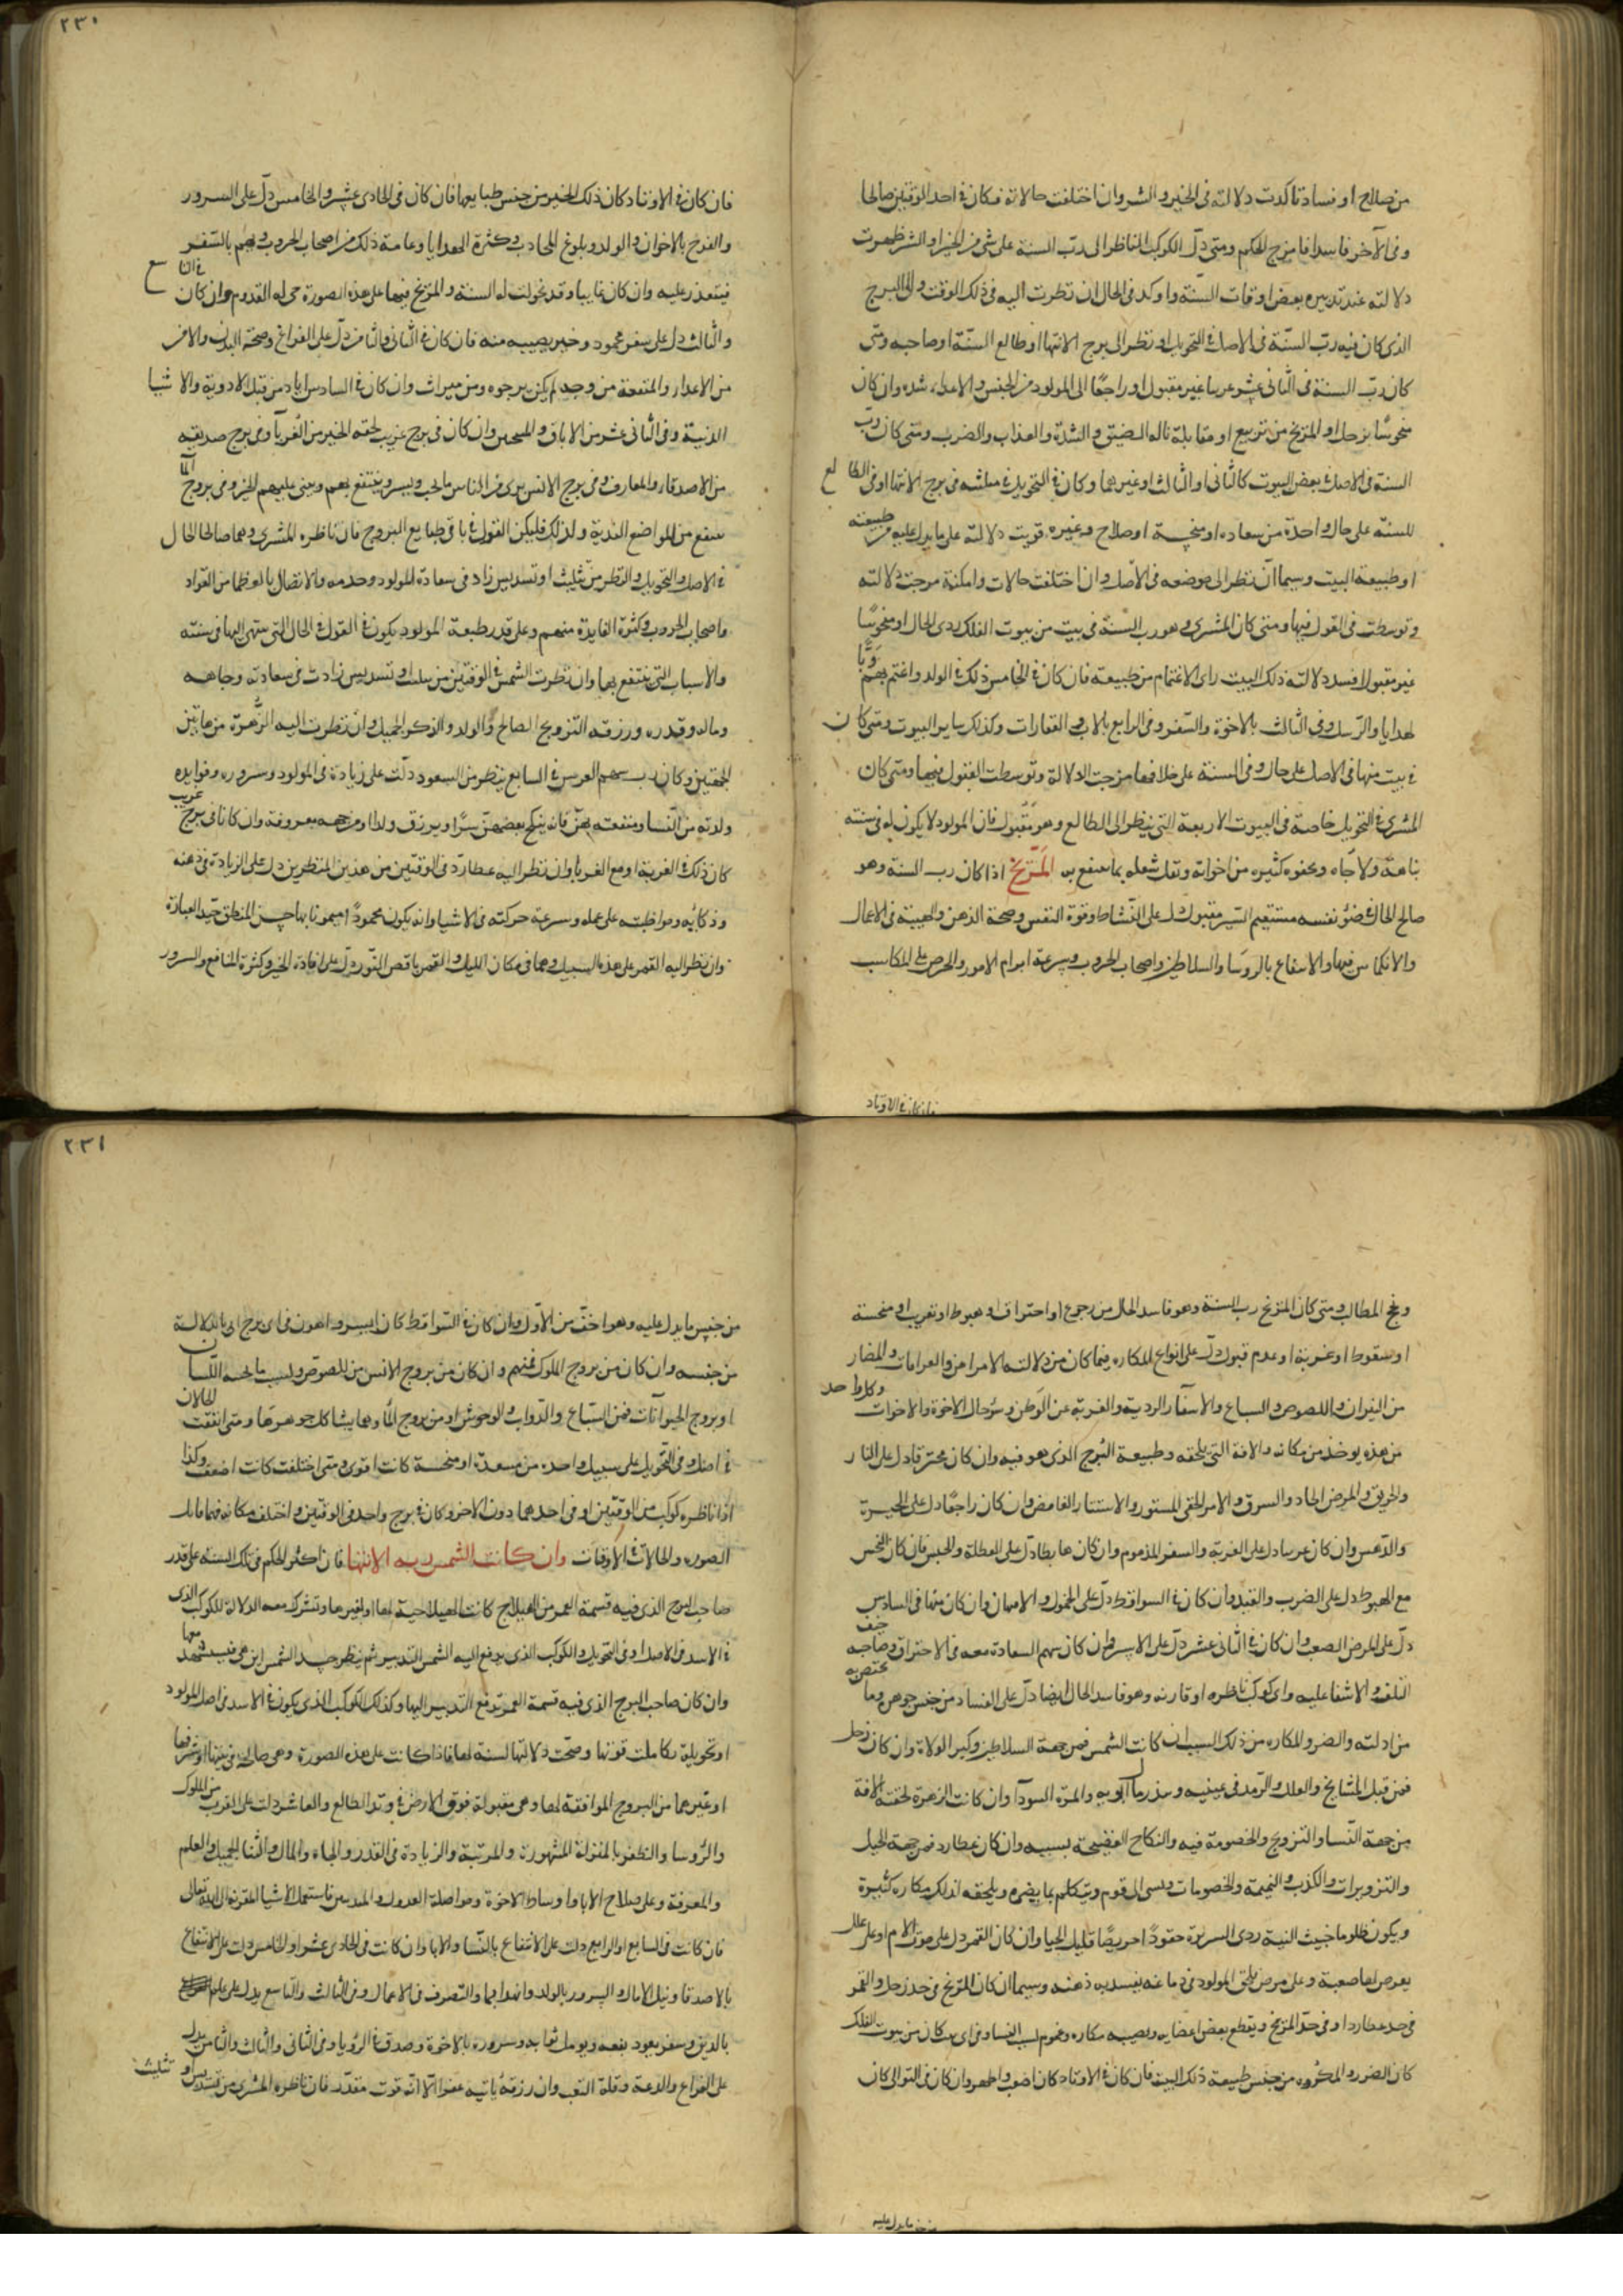 من صلاح او فساد تاكدت دلالته فى الخير والشر وان اختلفت حالاته فكان فى احد الوقتين صالحا
وفى الآخر فاسدا فامزج الحكم ومتى دلّ الكوكب الناظر الى ربّ السنة على شى من الخير او الشر ظهرت
دلالته عند تدبيره بعض اوقات السنّة واوكد فى الحال ان نظرت اليه فى ذلك الوقت والى البرج
الذى كان فيه ربّ السنّة فى الاصل فى التحويل او نظر الى برج الانتها او طالع السنّة او صاحبه ومتى
كان ربّ السنة فى الثانى عشر غريبا غير مقبول او راجعًا الى المولود من الحبس والاعداء شده وان كان
منحوسًا بزحل او المريخ من تربيع او مقابلة ناله الضيق والشدّة والعذاب والضرب ومتى كان ربّ
السنة فى الاصل فى بعض البيوت كالثانى او الثالث او غيرهما وكان فى التحويل فى مثله فى برج الانتها او فى الطالع
للسنّة على حال واحدة من سعاده او منحسة او صلاح وغيره قويت دلالته على ما يدل عليه من طبيعته
او طبيعة البيت وسيما ان نظر الى موضعه فى الاصل وان اختلفت حالات وامكنة مزجت دلالته
وتوسطت فى القول فيها ومتى كان المشترى وهو رب السنة فى بيت من بيوت الفلك ردى الحال او منحوسًا
غير مقبول افسد دلالته ذلك البيت راى الاغتمام من طبيعته فان كان فى الخامس ذلك فى الولد واغتم بهم
لهدايا والرّسل وفى الثالث بالاخوة والسّفر وفى الرابع بالاب والعقارات وكذلك ساير البيوت ومتى كان
فى بيت منها فى الاصل على حال وفى السنة على خلافها مزجت الدلالة وتوسطت القول فيها ومتى كان
المشترى فى التحويل خاصة فى البيوت الاربعة التى ينظر الى الطالع وهو مقبول فان المولود لا يكون له فى سنته
نباهة ولا جاه وبجفوه كثير من اخوانه وتقل شغله بما ينتفع به المرّيخ اذا كان رب السنة وهو
صالح الحال فى ضوء نفسه مستقيم السّير مقبول دل على النّشاط وقوة النفس وصحة الذهن والهيبة فى الاعمال
والانكماش فيها والانتفاع بالروسا والسلاطين واصحاب الحروب وسرعة ابرام الامور والحرص على المكاسب
فان كان فى الاوتاد
٢٣٠
فان كان فى الاوتاد كان ذلك الخير من جنس طبايعها فان كان فى الحادى عشر والخامس دلّ على السرور
والفرح بالاخوان والولد وبلوغ المحاب وكثرة الهدايا وعامة ذلك من اصحاب الحروب ويهم بالسّفر
فيتعذر عليه وان كان غايبا وقد تحولت له السنة والمريخ فيها على هذه الصورة حى له القدوم وان كان فى التاسع
والثالث دل على سفر محمود وخير يصيبه منه فان كان فى الثانى والثامن دلّ على الفراغ وصحة البدن والامن
من الاعداء والمنفعة من وجه لم يكن يرجوه ومن ميراث وان كان فى السادس اياد من قبل الادوية والاشيا
الدنية وفى الثانى عشر من الاباق والسجن وان كان فى برج غريب لحقه الخير من الغربآ وفى برج صديقه
من الاصدقاء والمعارف وفى برج الانس يرى من الناس ما يحب ويسر وينتفع بهم ويعنى عليهم الخير وفى بروج المآ
ينتفع من المواضع الندية ولذلك فليكن القول فى باقى طبايع البروج فان ناظره المشترى وهما صالحا الحال
فى الاصل والتحويل والنظر من تثليث او تسديس زاد فى سعادة المولود وخدمه والاتصال بالعظما من القواد
واصحاب الحروب وكثرة الفايدة منهم وعلى قدر طبيعة المولود يكون فى القول فى الحال التى ينتهى اليها فى سنته
والاسباب التى ينتفع بها وان نظرت الشمس فى الوقتين من تثليث او تسديس زادت فى سعادته وجاهه
وماله وقدره ورزقه التزويج الصالح والولد والذكر الجميل وان نظرت اليه الزّهرة من هاتين
الجهتين وكان رب سهم العرس فى السابع ينظر من السعود دلّت على زيادة فى المولود وسروره وفوايده
ولذته من النّسا ومنفعته بهنّ فانه ينكح بعضهنّ سرًا ويرزق ولدا من جهة معروفة وان كانا فى برج غريب
كان ذلك فى الغربة او مع الغربا وان نظر اليه عطارد فى الوقتين من هذين المنظرين دل على الزيادة فى ذهنه
وذكائه ومواظبته على عمله وسرعة حركته فى الاشيا وانه يكون محمودً اميمونا بها حسن المنطق جيد العبارة
وان نظر اليه القمر على هذه السبيل وهما فى مكان الليل والقمر ناقص النّور دلّ على افادة الخير وكثرة المنافع والسرور
ونجح المطالب ومتى كان المريخ رب السنة وهو فاسد الحال من رجوع او احتراق او هبوط او تغريب او منحسة
او سقوط او غربة او عدم قبول دلّ على انواع المكاره فيما كان من دلالته الامراض والغرامات والمضار
من النيران واللصوص والسباع والاسفار الردية والغربة عن الوطن وسوء حال الاخوة والاخوات وكل واحد
من هذه يوخذ من مكانه والافة التى تلحقه وطبيعة البرج الذى هو فيه وان كان محترقا دل على النار
والحريق والمرض الحاد والسرق والامر الخفى المستور والاستتار الغامض وان كان راجعًا دل على الحيرة
والدّهس وان كان غريبا دل على الغربة والسفر المذموم وان كان هابطا دلّ على العطلة والحبس فان كان النحس
مع الهبوط دل على الضرب والقيد وان كان فى السواقط دلّ على الخمول والامتهان وان كان منها فى السادس
دلّ على المرض الصعب وان كان فى الثانى عشر دلّ على الاسر وان كان سهم السعادة معه فى الاحتراق وصاحبه خيف
التلف والاشفا عليه واى كوكب ناظره او قارنه وهو فاسد الحال ايضا دلّ على الفساد من جنس جوهره وما يختص به
من ادلته والضر والمكاره من ذلك السبب ان كانت الشمس فمن جهة السلاطين وكبر الولاة وان كان زحل
فمن قبل المشايخ والعلل والرّمد فى عينيه والمرّه السودآ وان كانت الزهرة لحقته الافة
من جهة النّسا والتزويج والخصومة فيه والنكاح الفضيحة بسببه وان كان عطارد فمن جهة الحيل
والتزويرات والكذب والنميمة والخصومات ويسى الى قوم ويتكلم بما يضره ويلحقه لذلك مكاره كثيرة
ويكون ظلوما خبيث النية ردى السريرة حقودً احريصًا قليل الحيا وان كان القمر دل على موت الام او على علل
يعرض لها صعبة وعلى مرض يلحق المولود فى دماغه يفسد به ذهنه وسيما ان كان المرّيخ فى حد زحل والقمر
فى حد عطارد او فى حدّ المريخ ويقطع بعض اعضايه ويصيبه مكاره وغموم لسبب النسا وفى اى بيت كان من بيوت الفلك
كان الضرر والمكروه من جنس طبيعة ذلك البيت فان كان فى الاوتاد كان اصعب واظهر وان كان فى التوالى كان
من جنس ما يدل عليه
٢٣١
من جنس ما يدل عليه وهو اخفّ من الاوّل وان كان فى السّواقط كان ايسر واهون فى اى برج اى بالدلالة
من جنسه وان كان من بروج الملوك فمنهم وان كان من بروج الانس من اللصوص وليسب ما يلحقه اللّسان
او بروج الحيوآنات فمن السّباع والدّواب والوحوش او من بروج المآ ومما يشاكل جوهرها ومتى اتفقت الحالان
فى اصل وفى التّحويل على سبيل واحده من مسعدة او منحسة كانت اقوى ومتى اختلفت كانت اضعف وكذا
اذا ناظره كوكب من الوقتين او فى احدهما دون الاخر وكان فى برج واحد فى الوقتين واختلف مكانه فهما قابل
الصوره والحالات فى الاوقات وان كانت الشمس ربه الانتها فان اكثر الحكم فى تلك السنه على قدر
صاحب البرج الذى فيه قسمة العمر من الهيلاج كانت الهيلاجية لها او لغيرها وتشرك معه الدلالة للكوكب الذى
فى الاسد فى الاصل او فى التحويل والكوكب الذى يدفع اليه الشمس التدبير ثم ينظر جسد الشمس اين هى فيه
وان كان صاحب البرج الذى فيه قسمة العمر يدفع التدبير اليها وكذلك الكوكب الذى يكون فى الاسد فى اصل المولود
او تحويله تكاملت قوتها وصحّت دلالتها لسنة لها فاذا كانت على هذه الصورة وهى صالحة فى بيتها او شرفها
او غيرهما من البروج الموافقة لها وهى مقبولة فوق الارض فى وتد الطالع والعاشر دلت على القرب من الملوك
والرّوسا والظفر بالمنزلة المشهورة والمرتبة والزيادة فى القدر والجاه والمال والثنا الجميل والعلم
والمعرفة وعلى صلاح الابا واوساط الاخوة ومواصلة العدول والمدبرين فاستعمل الاشيا المقربة الى الله تعالى
فان كانت فى السابع او الرابع دلت على الانتفاع بالنّسا والابا وان كانت فى الحادى عشر او الخامس دلت على الانتفاع
بالاصدقا ونيل الامال والسرور بالولد والهدايا والتّصرف فى الاعمال وفى الثالث والتاسع يدل على علم
بالدين وسفر يعود بنفعه ويومل ثوابه وسروره بالاخوة وصدق فى الرّويا وفى الثانى والثالث والثامن يدل
على الفراغ والدعة وقلة التعب وان رزقهُ ياتيه عفوا الّا انّه قوت مقدّر فان ناظره المشترى من تسديس او تثليث